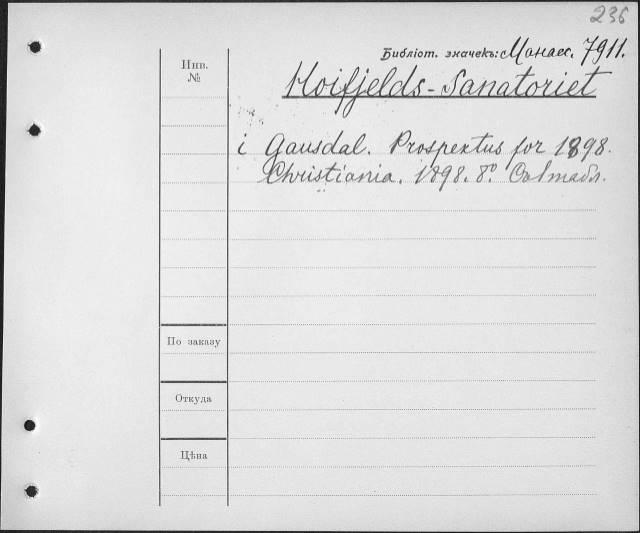 236
Библіот. значекъ: Манас. 7911.
Инв.
№
Hoifjelds-Sanatoriet
i Gausdal. Prospektus for 1898.
Christiania. 1898. 8°.
По заказу
Откуда
Цѣна